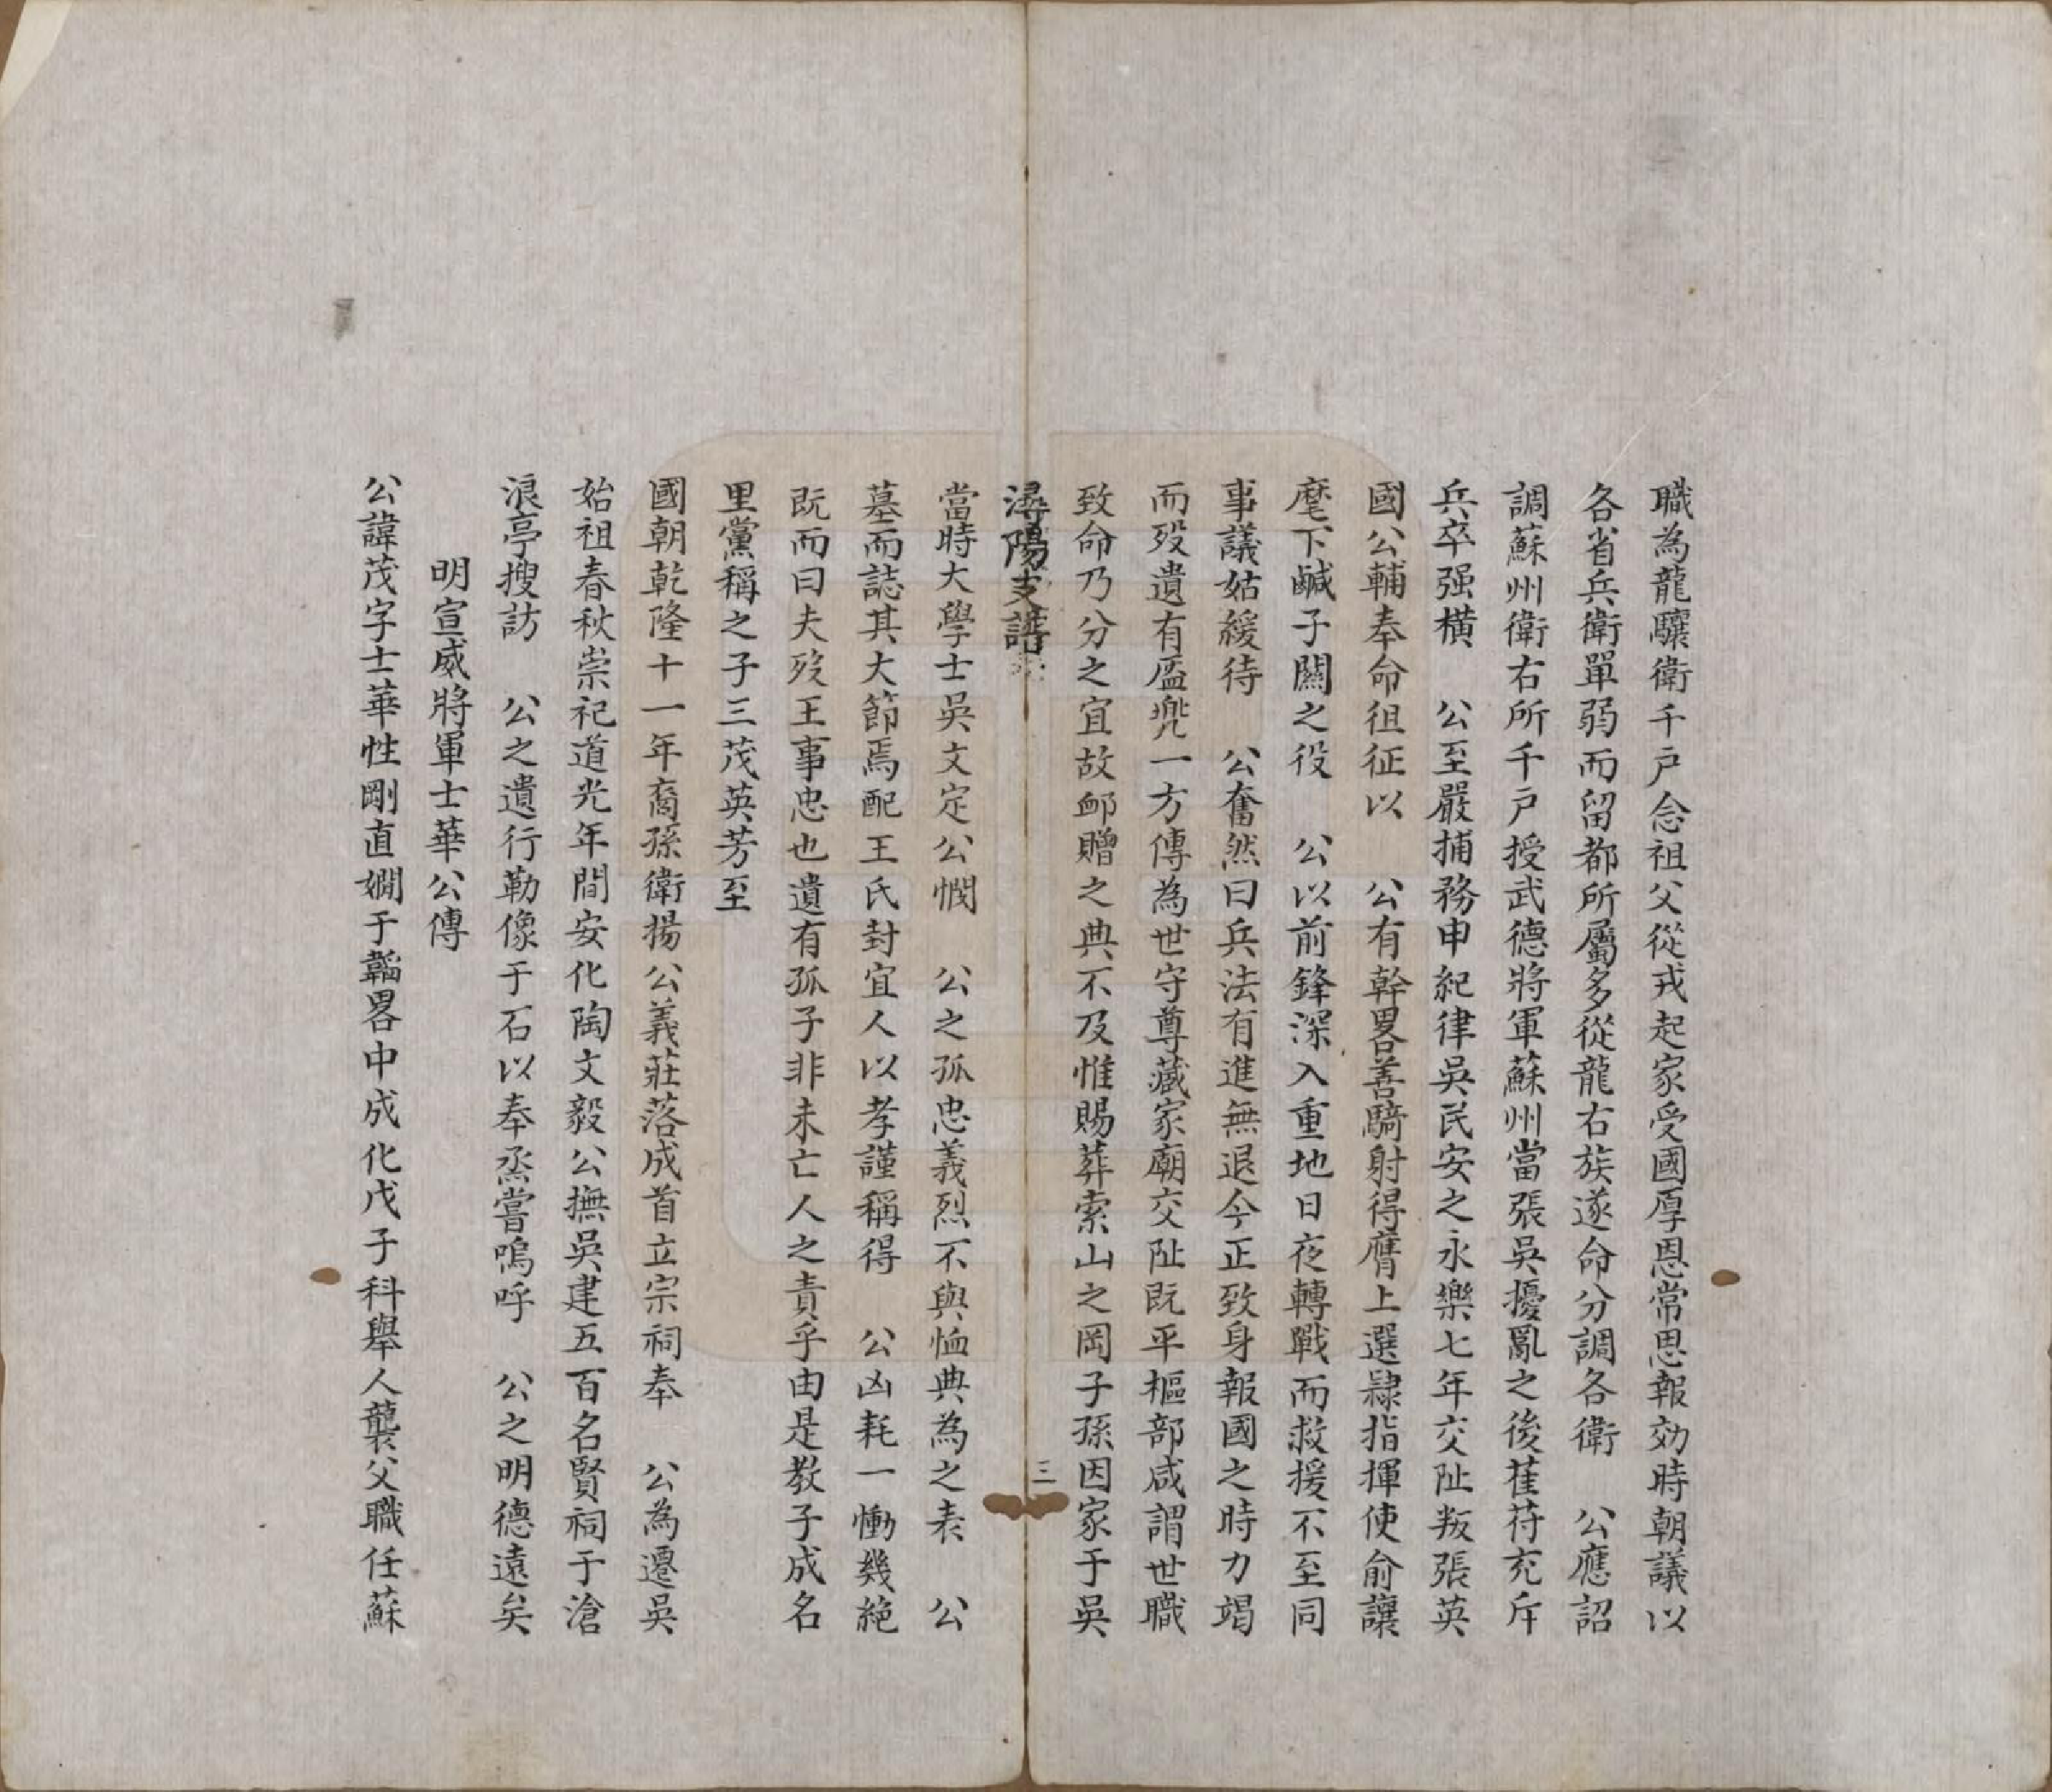 職為龍驤衛千戶念祖父從戎起家受國厚恩常思報効時朝議以
各省兵衛單弱而留都所屬多從龍右族遂命分調各衛　公應詔
調蘇州衛右所千戶授武德將軍蘇州當張吳擾亂之後萑苻充斥
兵卒强橫　公至嚴捕務申紀律吳民安之永樂七年交阯叛張英
國公輔奉命徂征以　公有幹畧善騎射得膺上選隷指揮使俞讓
麾下鹹子關之役　公以前鋒深入重地日夜轉戰而救援不至同
事議姑緩待　公奮然曰兵法有進無退今正致身報國之時力竭
而歿遺有盔兠一方傳為世守尊藏家廟交阯既平樞部咸謂世職
致命乃分之宜故卹贈之典不及惟賜葬索山之岡子孫因家于吳
潯陽支譜
三
當時大學士吳文定公憫　公之孤忠義烈不與恤典為之表　公
墓而誌其大節焉配王氏封宜人以孝謹稱得　公凶耗一慟幾絕
既而曰夫歿王事忠也遺有孤子非未亡人之責乎由是教子成名
里黨稱之子三茂英芳至
國朝乾隆十一年裔孫衛揚公義莊落成首立宗祠奉　公為遷吳
始祖春秋崇祀道光年間安化陶文毅公撫吳建五百名賢祠于滄
浪亭搜訪　公之遺行勒像于石以奉烝嘗嗚呼　公之明德遠矣
明宣威將軍士華公傳
公諱茂字士華性剛直嫻于韜畧中成化戊子科舉人襲父職任蘇